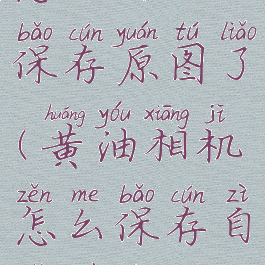 bǎo cún yuán tú liǎo
保存原图了
huáng yóu xiāng jī
(黄油相机
zěn me bǎo cún zì
怎么保存自